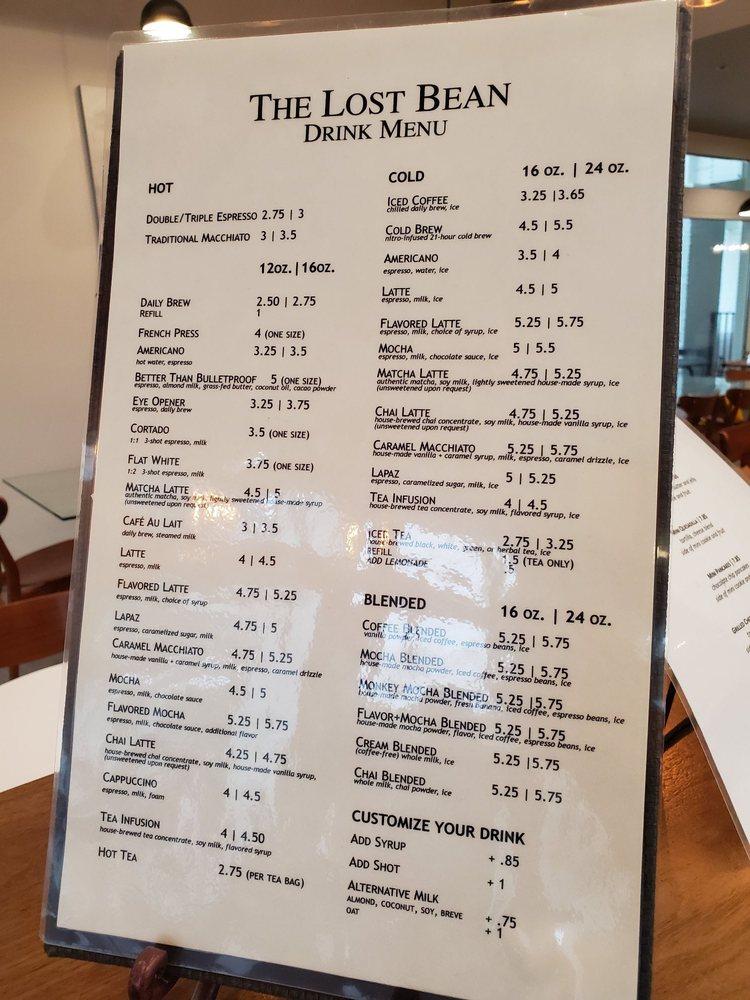 THE LOST BEAN
DRINK MENU
HOT
DOUBLE/TRIPLE ESPRESSO 2.75 | 3
TRADITIONAL MACCHIATO 3 | 3.5
12oz. | 16oz.
DAILY BREW 2.50 | 2.75
REFILL 1
FRENCH PRESS 4 (ONE SIZE)
AMERICANO 3.25 | 3.5
hot water, espresso
BETTER THAN BULLETPROOF 5 (ONE SIZE)
espresso, almond milk, grass-fed butter, coconut oil, cacao powder
EYE OPENER 3.25 | 3.75
espresso, daily brew
CORTADO 3.5 (ONE SIZE)
1:1 3-shot espresso, milk
FLAT WHITE 3.75 (ONE SIZE)
1:2 3-shot espresso, milk
MATCHA LATTE 4.5 | 5
authentic matcha, soy milk, lightly sweetened house-made syrup
(unsweetened upon request)
CAFÉ AU LAIT 3 | 3.5
daily brew, steamed milk
LATTE 4 | 4.5
espresso, milk
FLAVORED LATTE 4.75 | 5.25
espresso, milk, choice of syrup
LAPAZ 4.75 | 5
espresso, caramelized sugar, milk
CARAMEL MACCHIATO 4.75 | 5.25
house-made vanilla + caramel syrup, milk, espresso, caramel drizzle
MOCHA 4.5 | 5
espresso, milk, chocolate sauce
FLAVORED MOCHA 5.25 | 5.75
espresso, milk, chocolate sauce, additional flavor
CHAI LATTE 4.25 | 4.75
house-brewed chai concentrate, soy milk, house-made vanilla syrup,
(unsweetened upon request)
CAPPUCCINO 4 | 4.5
espresso, milk, foam
TEA INFUSION 4 | 4.50
house-brewed tea concentrate, soy milk, flavored syrup
HOT TEA 2.75 (PER TEA BAG)
COLD 16 oz. | 24 oz.
ICED COFFEE 3.25 |3.65
chilled daily brew, ice
COLD BREW 4.5 | 5.5
nitro-infused 21-hour cold brew
AMERICANO 3.5 | 4
espresso, water, ice
LATTE 4.5 | 5
espresso, milk, ice
FLAVORED LATTE 5.25 | 5.75
espresso, milk, choice of syrup, ice
MOCHA 5 | 5.5
espresso, milk, chocolate sauce, ice
MATCHA LATTE 4.75 | 5.25
authentic matcha, soy milk, lightly sweetened house-made syrup, ice
(unsweetened upon request)
CHAI LATTE 4.75 | 5.25
house-brewed chai concentrate, soy milk, house-made vanilla syrup, ice
(unsweetened upon request)
CARAMEL MACCHIATO 5.25 | 5.75
house-made vanilla + caramel syrup, milk, espresso, caramel drizzle, ice
LAPAZ 5 | 5.25
espresso, caramelized sugar, milk, ice
TEA INFUSION 4 | 4.5
house-brewed tea concentrate, soy milk, flavored syrup, ice
ICED TEA 2.75 | 3.25
house-brewed black, white, green, or herbal tea, ice
REFILL 1.5 (TEA ONLY)
ADD LEMONADE .5
BLENDED 16 oz. | 24 oz.
COFFEE BLENDED 5.25 | 5.75
vanilla powder, iced coffee, espresso beans, ice
MOCHA BLENDED 5.25 | 5.75
house-made mocha powder, iced coffee, espresso beans, ice
MONKEY MOCHA BLENDED 5.25 |5.75
house-made mocha powder, fresh banana, iced coffee, espresso beans, ice
FLAVOR+MOCHA BLENDED 5.25 | 5.75
house-made mocha powder, flavor, iced coffee, espresso beans, ice
CREAM BLENDED 5.25 |5.75
(coffee-free) whole milk, ice
CHAI BLENDED 5.25 | 5.75
whole milk, chai powder, ice
CUSTOMIZE YOUR DRINK
ADD SYRUP + .85
ADD SHOT + 1
ALTERNATIVE MILK
ALMOND, COCONUT, SOY, BREVE + .75
OAT + 1
MINI QUESADILLA 7.95
tortilla, cheese blend
side of mini cookie and fruit
MINI PANCAKES 7.95
chocolate chip pancakes
side of mini cookie